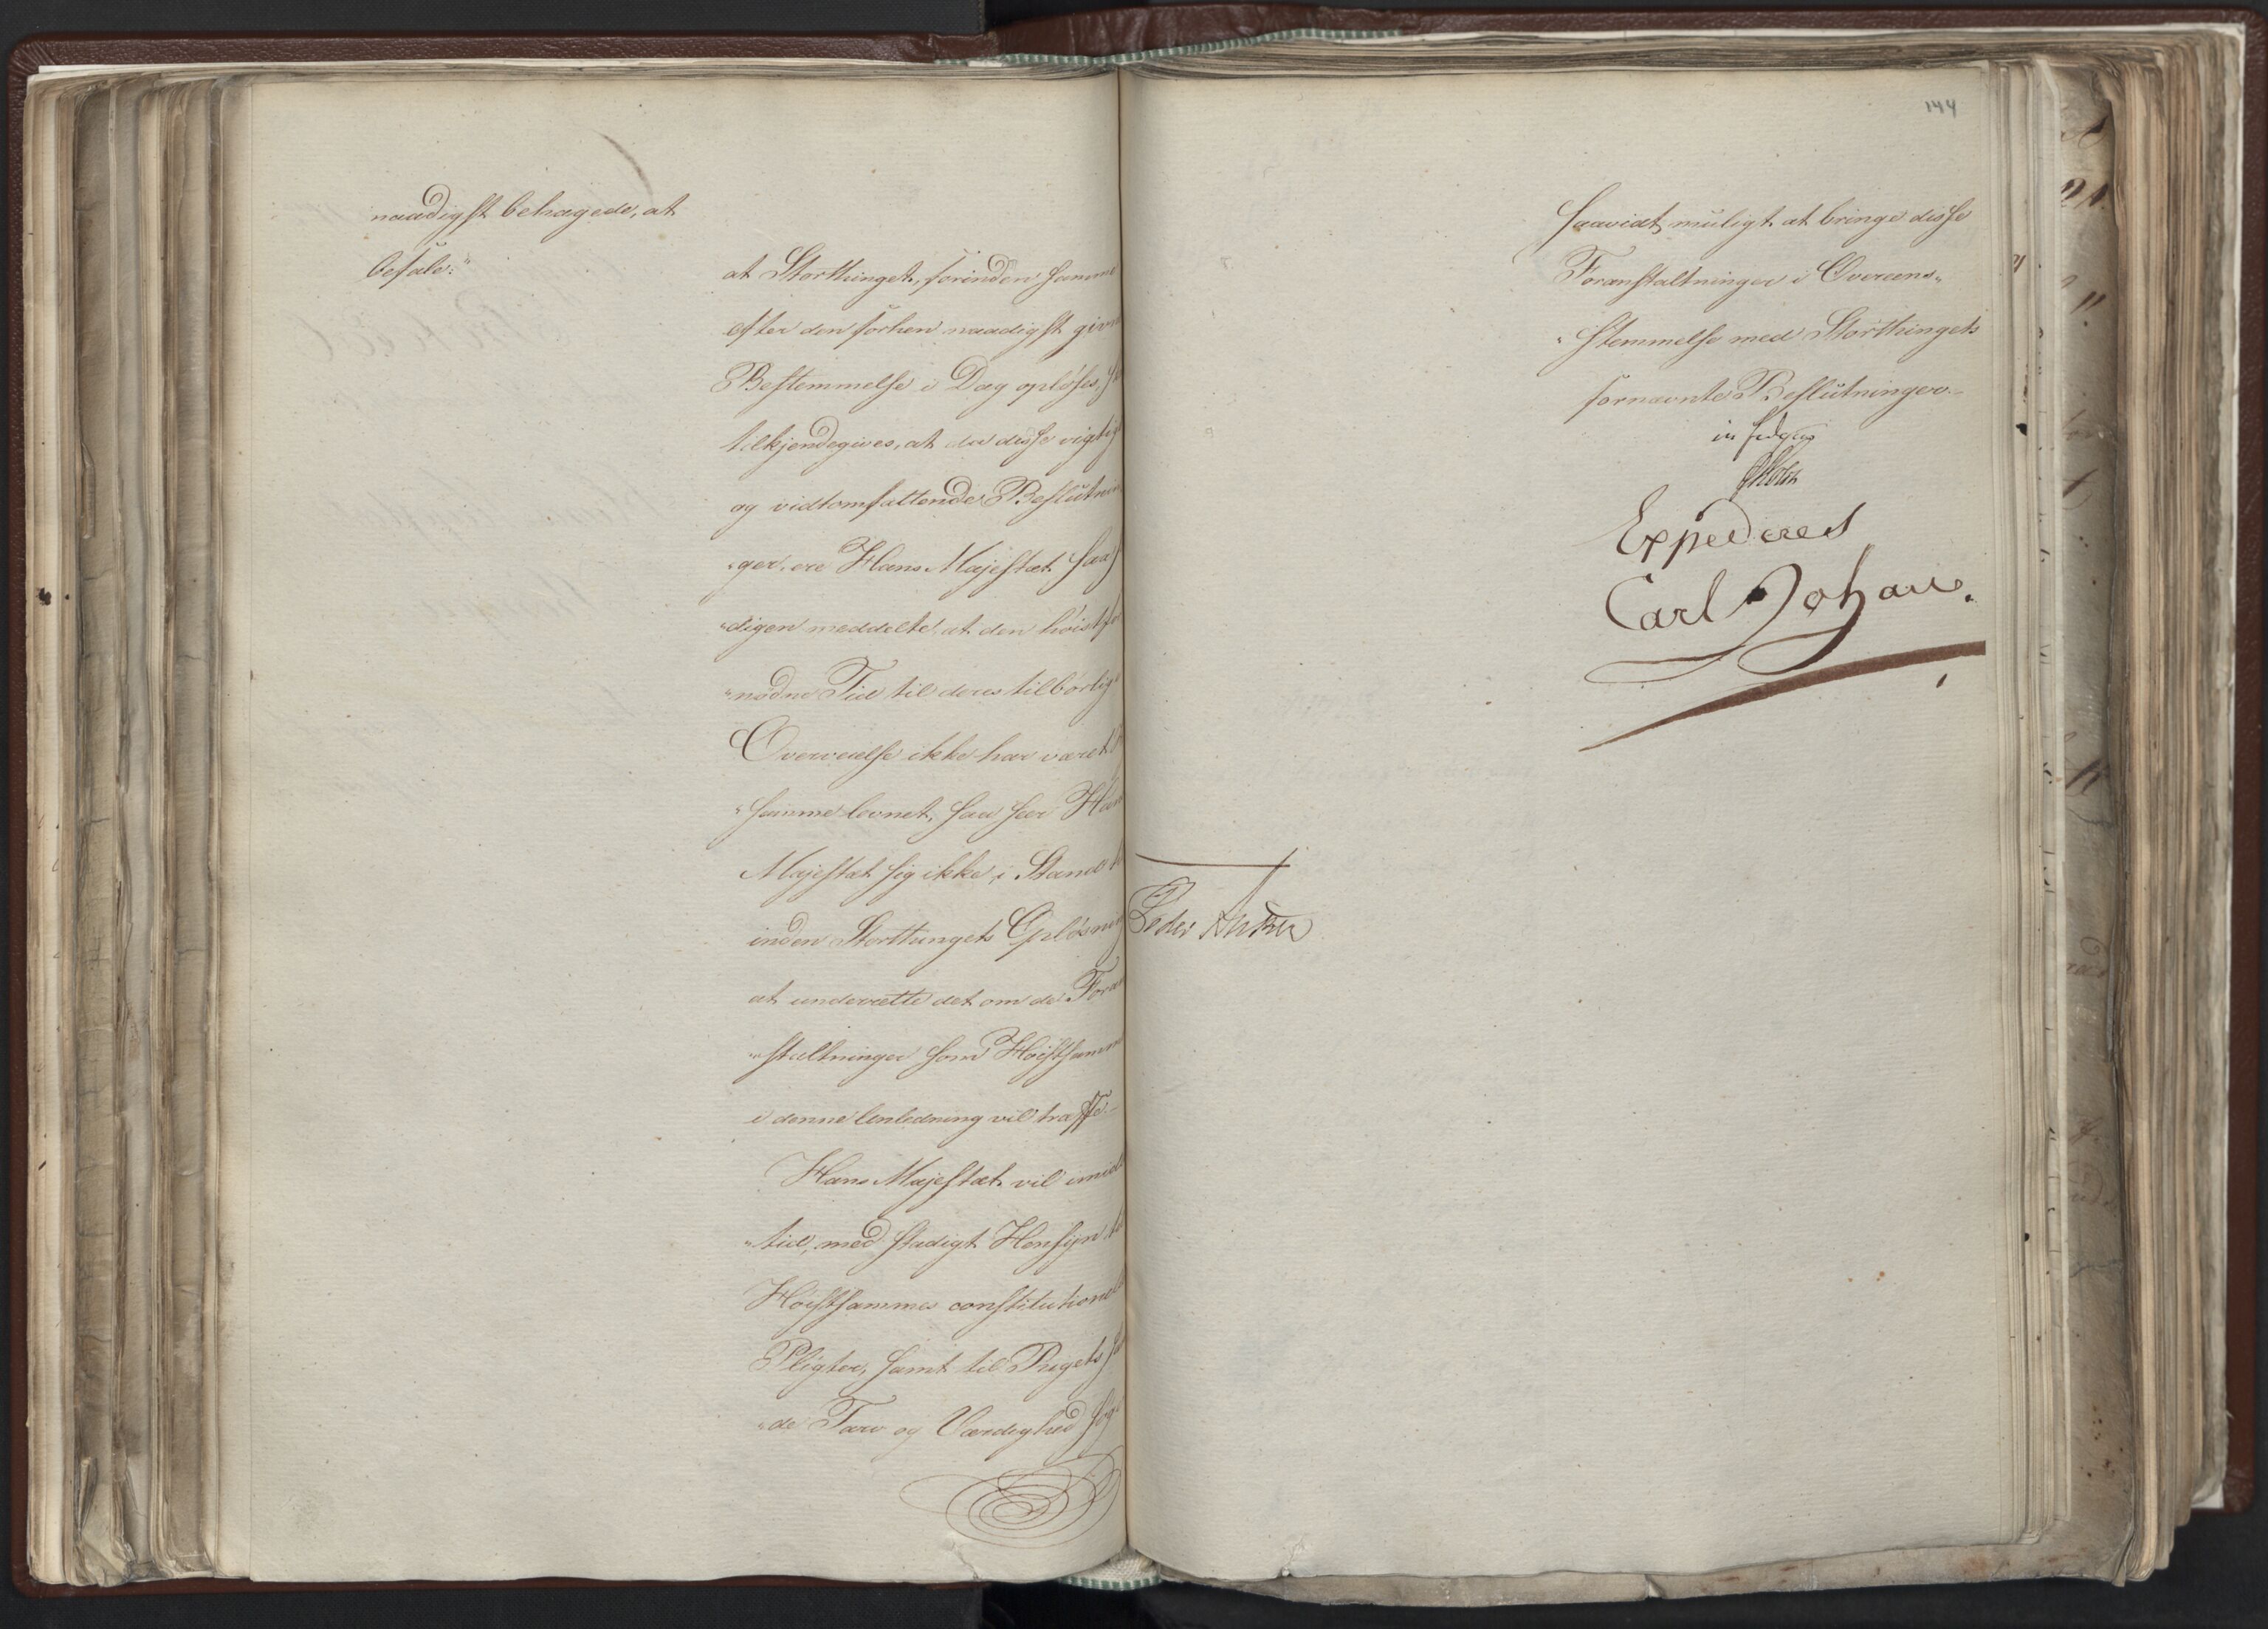 naadigst behagede, at
befale:"
at Storthinget, forinden samme
efter den forhen naadigst givne
Bestemmelse i Dag opløses,
tilkjendegives, at da disse vigtig
og vidtomfattende Beslutnin
"ger, ere Hans Majestæt saa
"digen meddelte at den høist
"nødne Tid til deres tilbørlige
Overveielse ikke har været
"samme levnet, saa seer Hans
Majestæt sig ikke i Stand
inden Storthingets Opløsning
at underrette det om de Foran
"staltninger som Høistsamme
i denne Anledning vil træffe.-
Hans Majestæt vil imid
"tid, med stadigt Hensyn til
Høistsammes constitutionel
Pligter, samt til Rigets
"de Tarv og Værdighed søge
144
saavidt muligt at bringe disse
Foranstaltninger i Overeens"
"stemmelse med Storthingets
fornævnte Beslutninger.-
in fidem
Holst
Expederes
Carl Johan.
Peder Anker